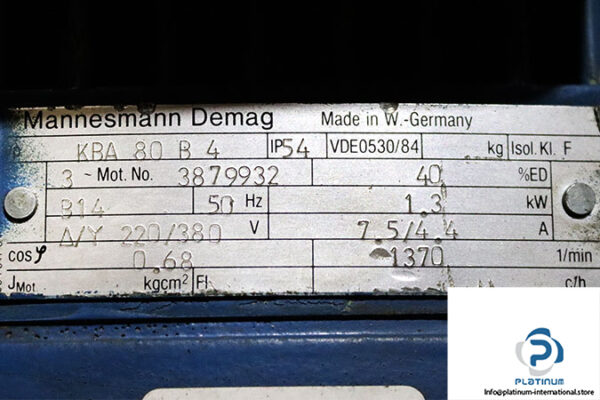 Mannesmann Demag Made in W.-Germany
KBA 80 B 4 IP54 VDE0530/84 kg Isol. Kl. F
3 ~ Mot. No. 3879932 40 %ED
B14 50 Hz 1.3 kW
Δ/Y 220/380 V 7.5/4.4 A
cosφ 0.68 1370 1/min
JMot kgcm² FI c/h
PLATINUM
https://platinum-international.store